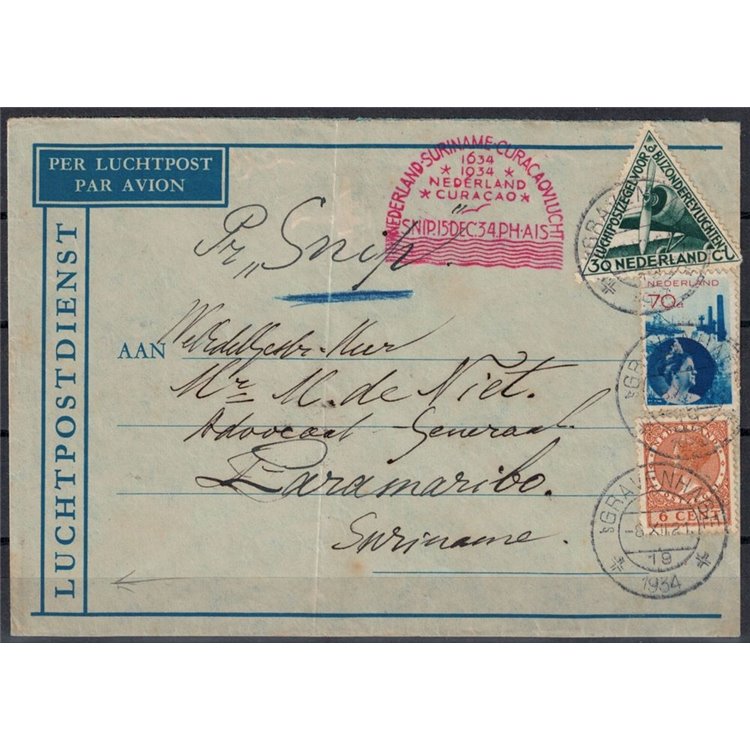 PER LUCHTPOST
PAR AVION
LUCHTPOSTDIENST
NEDERLAND-SURINAME-CURACAOVLUCHT
1634
1934
NEDERLAND
CURACAO
SNIP.15DEC.34.PH-AIS
LUCHTPOSTZEGEL VOOR BIJZONDERE VLUCHTEN
30 NEDERLAND CT
NEDERLAND
70ct
NEDERLAND
6 CENT
'S GRAVENHAGE
-8.XII.21
19
1934
Pr „Snip".
AAN WelEdelgestr. Heer
Mr. M. de Niet.
Advocaat-Generaal
Paramaribo.
Suriname.